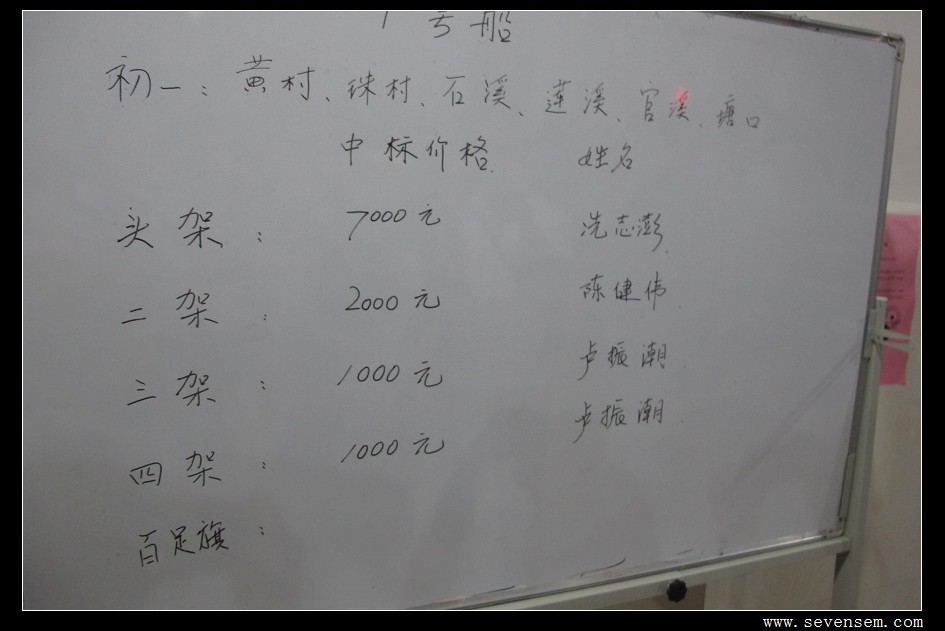 1号船
初一：黄村、珠村、石溪、莲溪、官溪、塘口
中标价格 姓名
头架： 7000元 冼志澎
二架： 2000元 陈健伟
三架： 1000元 卢振潮
四架： 1000元 卢振潮
百足旗：
www.sevensem.com